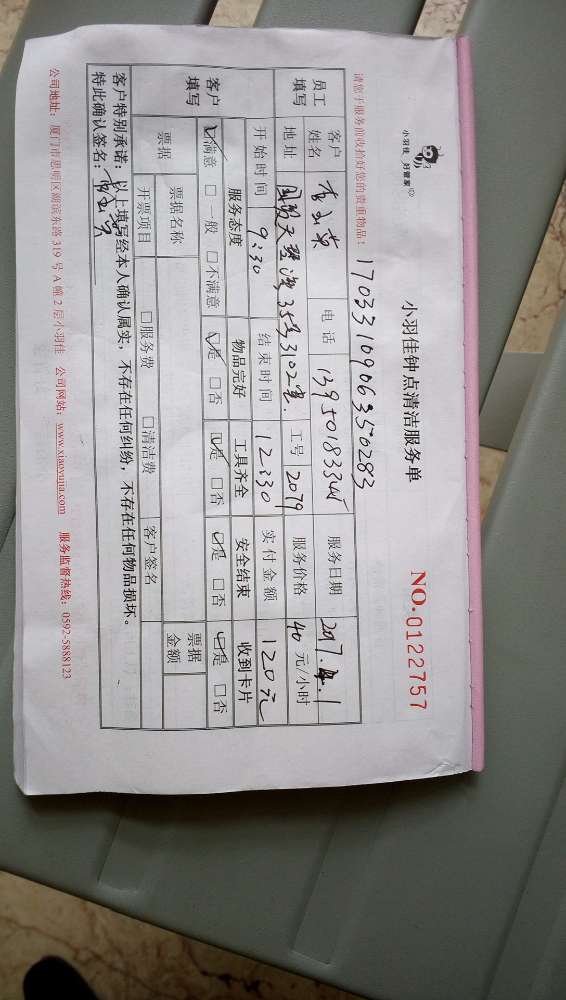 小羽佳 好管家
小羽佳钟点清洁服务单
NO.0122757
请您于服务前收拾好您的贵重物品!
1703310906350283
员工填写 客户姓名 电话 服务日期 2017.4.1
地址 35号3102室. 工号 2079 服务价格 40元/小时
开始时间 9:30 结束时间 12:30 实付金额 120元
客户填写 服务态度 物品完好 工具齐全 安全结束 收到卡片
☑满意 □一般 □不满意 ☑是 □否 ☑是 □否 ☑是 □否 ☑是 □否
票据 票据名称 票据金额
开票项目 □服务费 □清洁费 客户签名
客户特别承诺:以上填写经本人确认属实,不存在任何纠纷,不存在任何物品损坏。
特此确认签名:
公司地址:厦门市思明区湖滨东路319号A幢2层小羽佳 公司网站:www.xiaoyujia.com 服务监督热线:0592-5888123